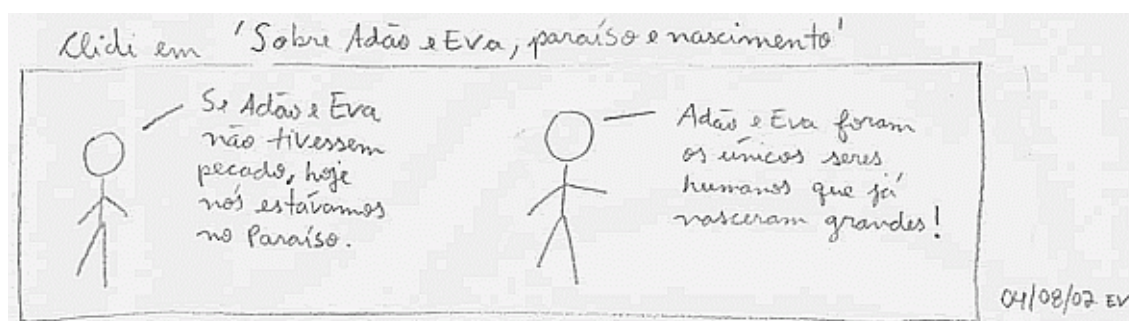 Clidi em 'Sobre Adão e Eva, paraíso e nascimento'
Se Adão e Eva
não tivessem
pecado, hoje
nós estávamos
no Paraíso.
Adão e Eva foram
os únicos seres
humanos que já
nasceram grandes!
04/08/02 EV